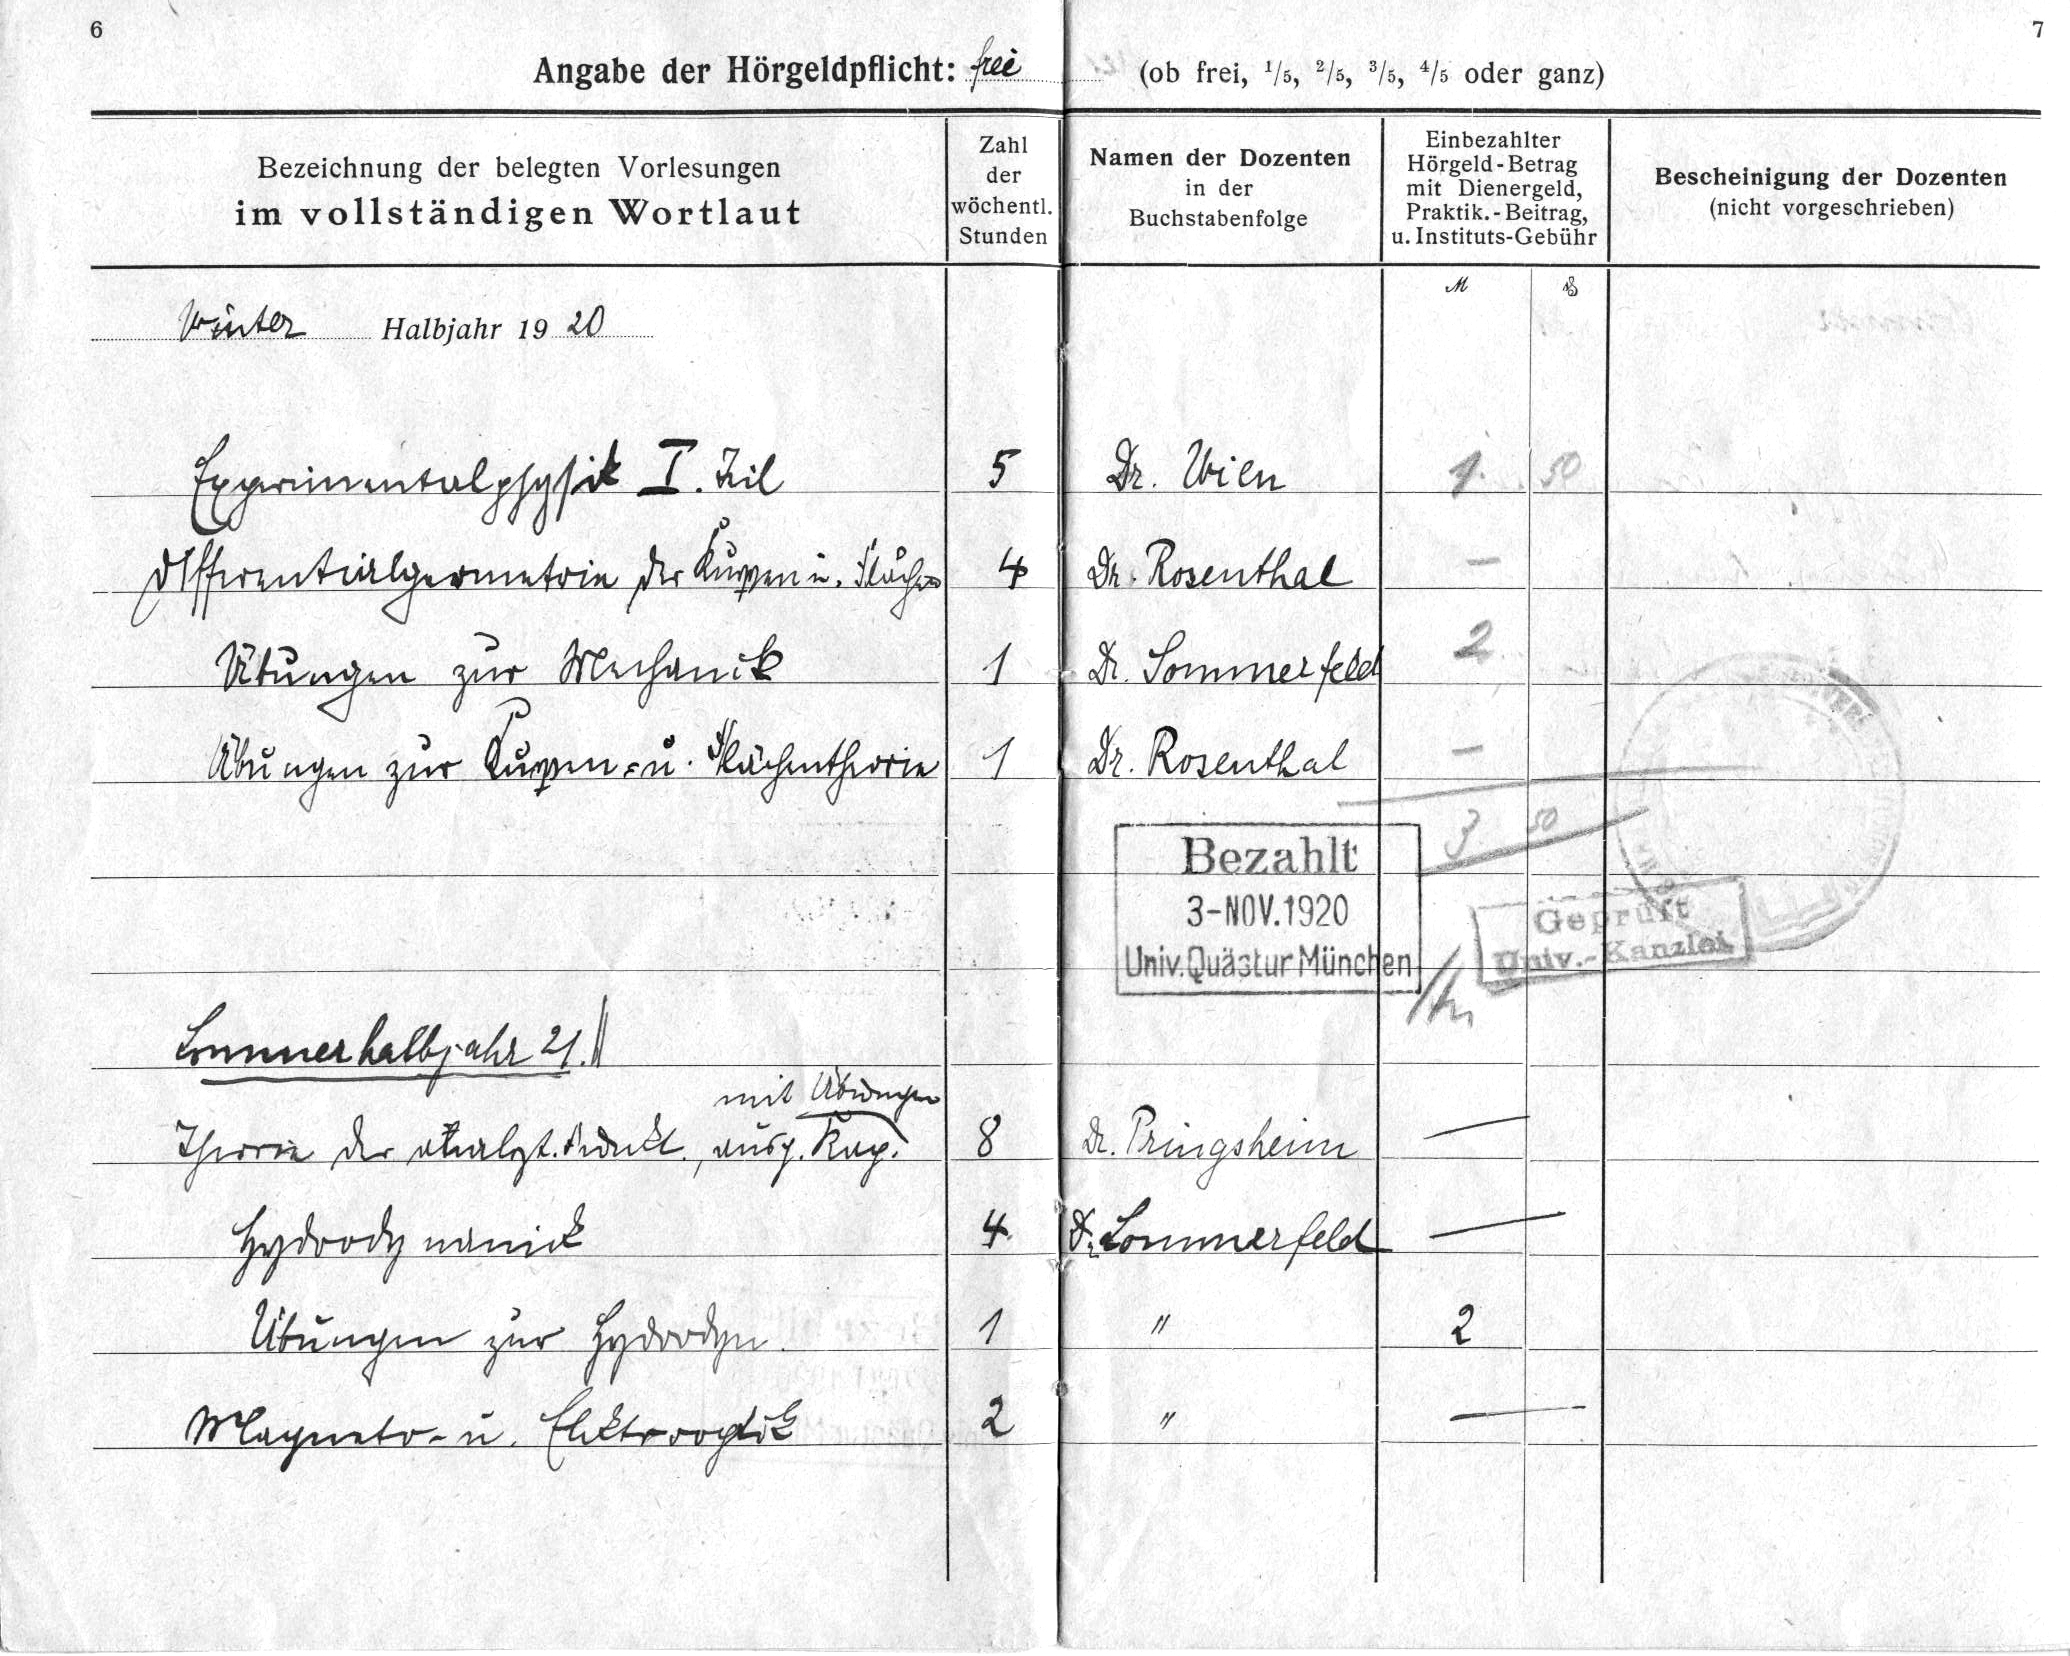 6
7
Angabe der Hörgeldpflicht: frei (ob frei, 1/5, 2/5, 3/5, 4/5 oder ganz)
Bezeichnung der belegten Vorlesungen
im vollständigen Wortlaut
Zahl
der
wöchentl.
Stunden
Namen der Dozenten
in der
Buchstabenfolge
Einbezahlter
Hörgeld-Betrag
mit Dienergeld,
Praktik.-Beitrag,
u. Instituts-Gebühr
Bescheinigung der Dozenten
(nicht vorgeschrieben)
M ₰
Winter Halbjahr 1920
Experimentalphysik I. Teil 5 Dr. Wien 1. 50
Differentialgeometrie der Kurven u. Flächen 4 Dr. Rosenthal —
Übungen zur Mechanik 1 Dr. Sommerfeld 2
Übungen zur Kurven- u. Flächentheorie 1 Dr. Rosenthal —
3 50
Bezahlt
3-NOV.1920
Univ. Quästur München
Geprüft
Univ.-Kanzlei
Sommerhalbjahr 21.
mit Übungen
Theorie der analyt. Funkt., ausg. Kap. 8 Dr. Pringsheim —
Hydrodynamik 4 Dr. Sommerfeld —
Übungen zur Hydrodyn. 1 " 2
Magneto- u. Elektrooptik 2 " —